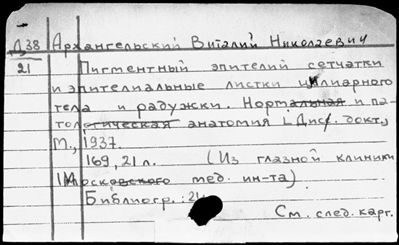 Д38 Архангельский Виталий Николаевич
21 Пигментный эпителий сетчатки
и эпителиальные листки цилиарного
тела и радужки. Нормальная и па-
тологическая анатомия [Дисс. докт.,
М., 1937.
169, 21 л. (Из глазной клиники
I Московского мед. ин-та)
Библиогр.: 21
См. след. карт.